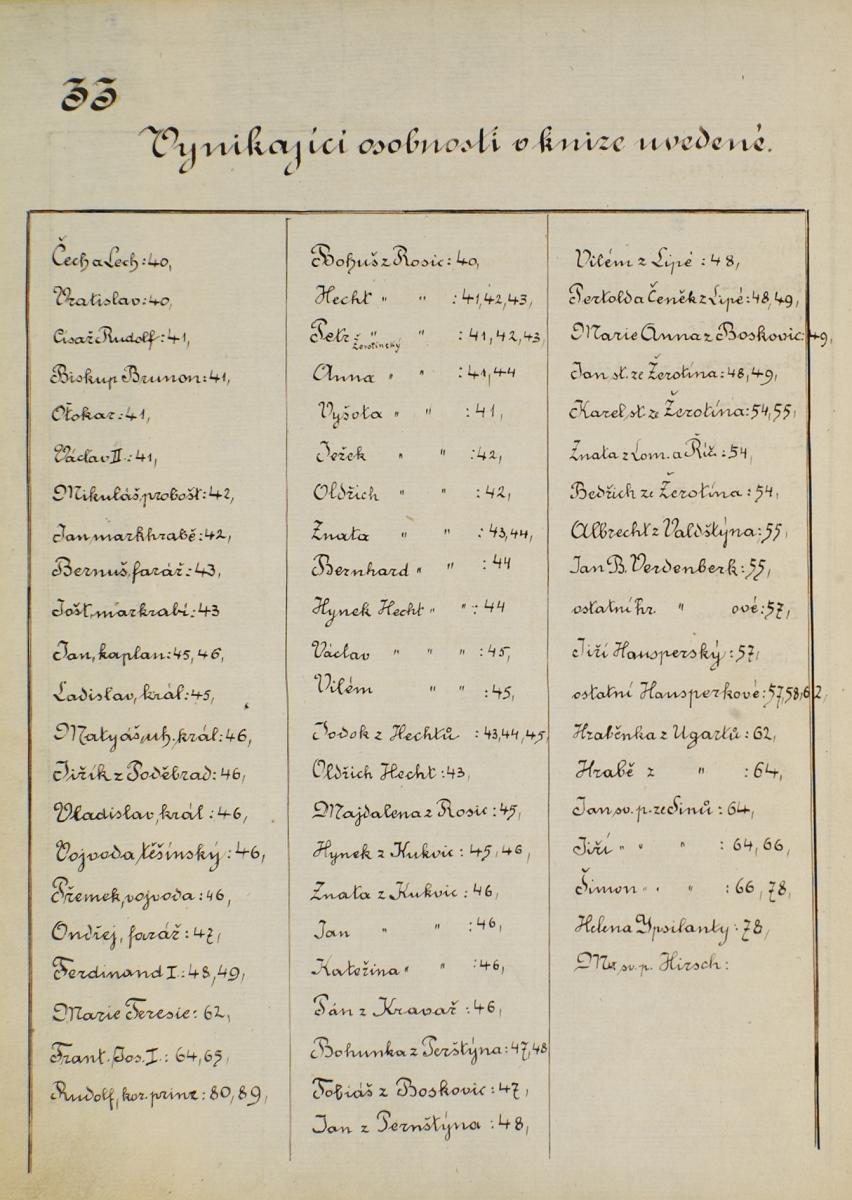 33
Vynikající osobnosti v knize uvedené.
Čech a Lech: 40,
Vratislav: 40,
Císař Rudolf: 41,
Biskup Brunon: 41,
Otokar: 41,
Václav II: 41,
Mikuláš, probošt: 42,
Jan, markhrabě: 42,
Bernuš, farář: 43,
Jošt, markrabí: 43
Jan, kaplan: 45, 46,
Ladislav, král: 45,
Matyáš, uh. král: 46,
Jiřík z Poděbrad: 46,
Vladislav, král: 46,
Vojvoda těšínský: 46,
Přemek, vojvoda: 46,
Ondřej, farář: 47,
Ferdinand I.: 48, 49,
Marie Teresie: 62,
Frant. Jos. I.: 64, 65,
Rudolf, kor. princ: 80, 89,
Bohuš z Rosic: 40,
Hecht " " : 41, 42, 43,
Petr z " " : 41, 42, 43
Žerotínský
Anna " " : 41, 44
Vyšota " " : 41,
Ježek " " : 42,
Oldřich " " : 42,
Znata " " : 43, 44,
Bernhard " " : 44
Hynek Hecht " " : 44
Václav " " " : 45,
Vilém " " : 45,
Jodok z Hechtů : 43, 44, 45,
Oldřich Hecht: 43,
Majdalena z Rosic: 45,
Hynek z Kukvic: 45, 46,
Znata z Kukvic: 46,
Jan " " : 46,
Kateřina " " : 46,
Pán z Kravař: 46,
Bohunka z Perštýna: 47, 48
Tobiáš z Boskovic: 47,
Jan z Pernštýna : 48,
Vilém z Lipé : 48,
Pertold a Čeněk z Lipé: 48, 49,
Marie Anna z Boskovic: 49,
Jan st. ze Žerotína: 48, 49,
Karel, st. ze Žerotína: 54, 55,
Znata z Lom. a Říž.: 54,
Bedřich ze Žerotína: 54,
Albrecht z Valdštýna: 55,
Jan B. Verdenberk: 55,
ostatní hr. " ové: 57,
Jiří Hausperský: 57,
ostatní Hausperkové: 57, 58, 62,
Hraběnka z Ugartů: 62,
Hrabě z " : 64,
Jan sv. p. ze Sinů: 64,
Jiří " " " : 64, 66,
Šimon " " " : 66, 78,
Helena Ypsilanty: 78,
sv. p. Hirsch: